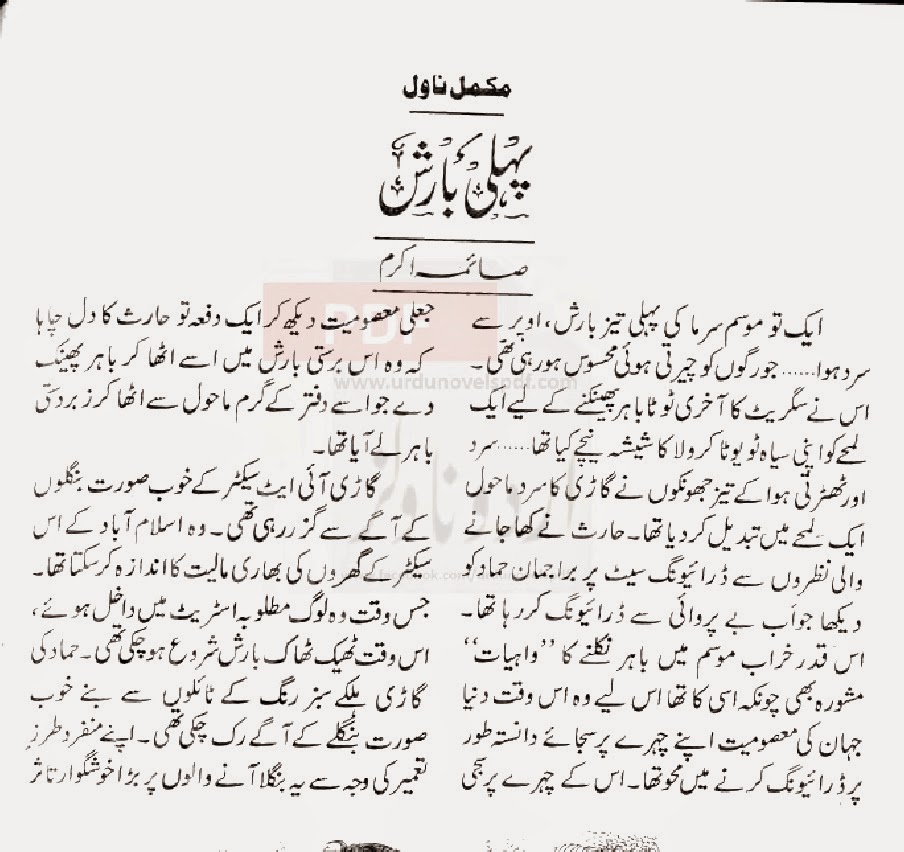 مکمل ناول
پہلی بارش
صائمہ اکرم
ایک تو موسم سرما کی پہلی تیز بارش، اوپر سے
سرد ہوا...... جو رگوں کو چیرتی ہوئی محسوس ہو رہی تھی۔
اس نے سگریٹ کا آخری ٹوٹا باہر پھینکنے کے لیے ایک
لمحے کو اپنی سیاہ ٹویوٹا کرولا کا شیشہ نیچے کیا تھا...... سرد
اور ٹھٹھرتی ہوا کے تیز جھونکوں نے گاڑی کا سرد ماحول
ایک لمحے میں تبدیل کر دیا تھا۔ حارث نے کھا جانے
والی نظروں سے ڈرائیونگ سیٹ پر براجمان حماد کو
دیکھا جو اب بے پروائی سے ڈرائیونگ کر رہا تھا۔
اس قدر خراب موسم میں باہر نکلنے کا ”واہیات“
مشورہ بھی چونکہ اسی کا تھا اس لیے وہ اس وقت دنیا
جہان کی معصومیت اپنے چہرے پر سجائے دانستہ طور
پر ڈرائیونگ کرنے میں محو تھا۔ اس کے چہرے پر سجی
جعلی معصومیت دیکھ کر ایک دفعہ تو حارث کا دل چاہا
کہ وہ اس برستی بارش میں اسے اٹھا کر باہر پھینک
دے جو اسے دفتر کے گرم ماحول سے اٹھا کر زبردستی
باہر لے آیا تھا۔
گاڑی آئی ایٹ سیکٹر کے خوب صورت بنگلوں
کے آگے سے گزر رہی تھی۔ وہ اسلام آباد کے اس
سیکٹر کے گھروں کی بھاری مالیت کا اندازہ کر سکتا تھا۔
جس وقت وہ لوگ مطلوبہ اسٹریٹ میں داخل ہوئے،
اس وقت ٹھیک ٹھاک بارش شروع ہو چکی تھی۔ حماد کی
گاڑی ہلکے سبز رنگ کے ٹائلوں سے بنے خوب
صورت بنگلے کے آگے رک چکی تھی۔ اپنے منفرد طرز
تعمیر کی وجہ سے یہ بنگلا آنے والوں پر بڑا خوشگوار تاثر
PDF
www.urdunovelspdf.com